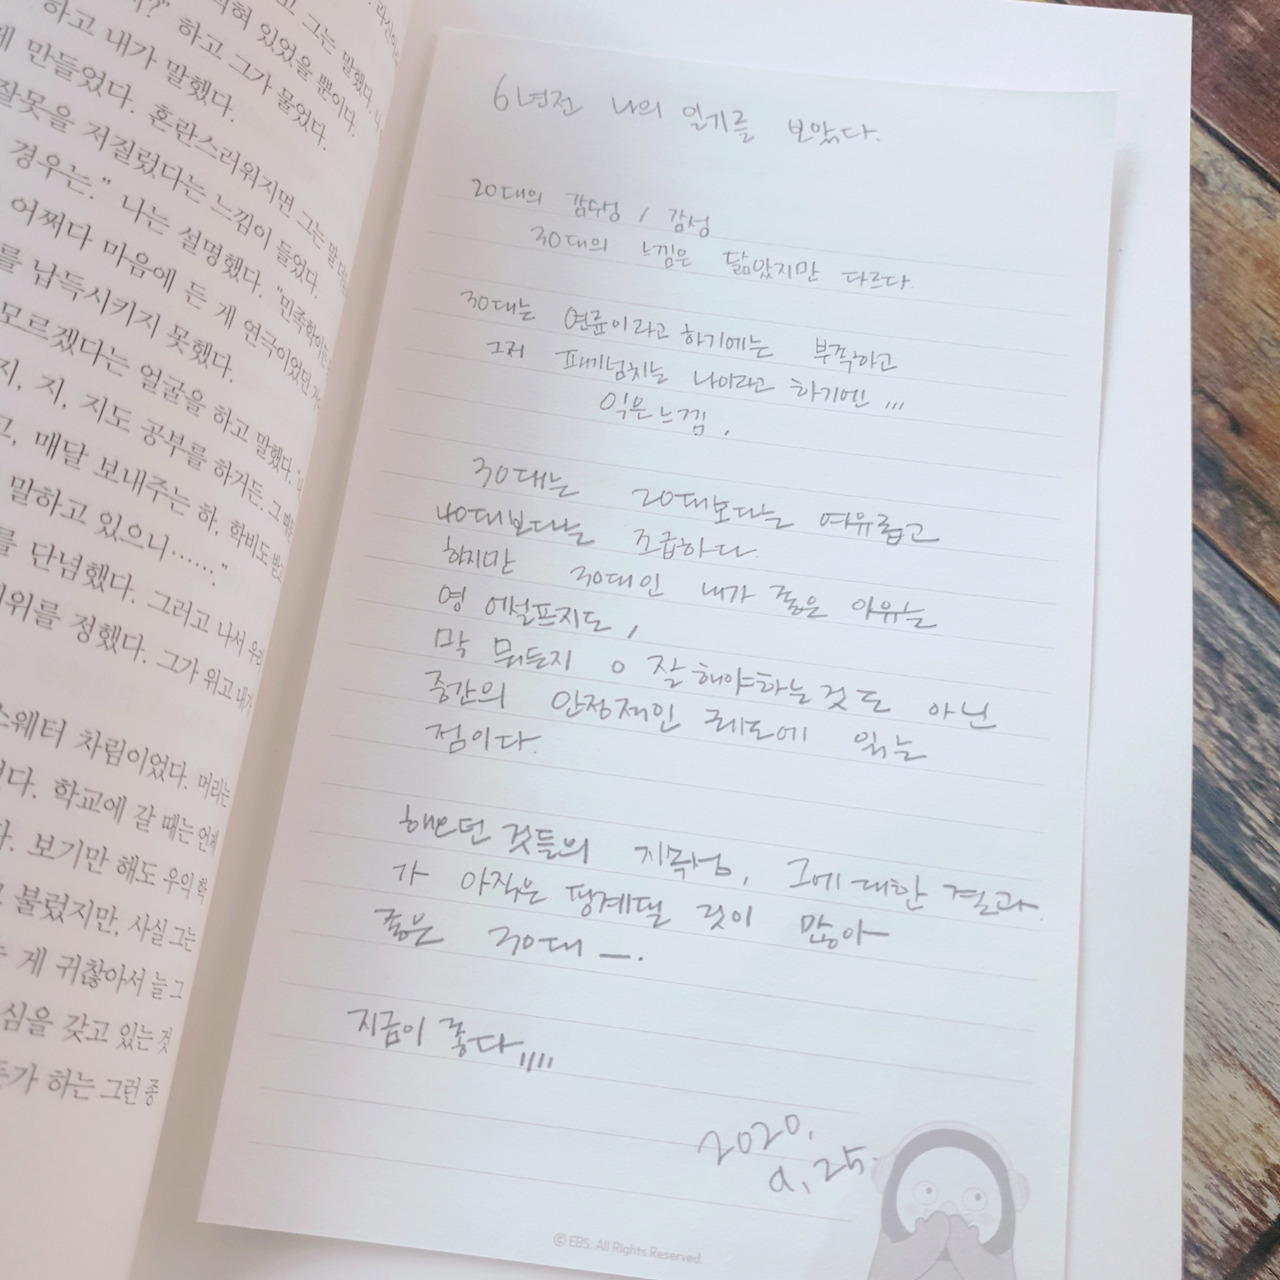 고 그는 말했다.
하고 그가 물었다.
혀 있었을 뿐이다.
하고 내가 말했다.
게 만들었다. 혼란스러워지면 그는 말
잘못을 저질렀다는 느낌이 들었다.
경우는." 나는 설명했다. "민족학이든
어쩌다 마음에 든 게 연극이었던
를 납득시키지 못했다.
모르겠다는 얼굴을 하고 말했다.
지, 지, 지도 공부를 하거든. 그
고, 매달 보내주는 하, 학비도 받고
말하고 있으니……."
를 단념했다. 그러고 나서 우리
위를 정했다. 그가 위고 내가
스웨터 차림이었다. 머리는
다. 학교에 갈 때는 언제
다. 보기만 해도 우의 학
불렀지만, 사실 그는
게 귀찮아서 늘 그
심을 갖고 있는 것
가 하는 그런 종
6년전 나의 일기를 보았다.
20대의 감수성 / 감성
30대의 느낌은 닮았지만 다르다.
30대는 연륜이라고 하기에는 부족하고
그저 패기넘치는 나이라고 하기엔 ...
익은 느낌.
30대는 20대보다는 여유롭고
40대보다는 조급하다.
하지만 30대인 내가 좋은 이유는
영 어설프지도,
막 뭐든지 잘해야하는것도 아닌
중간의 안정적인 궤도에 있는
점이다.
해오던 것들의 지속성, 그에 대한 결과
가 아직은 핑계댈 것이 많아
좋은 30대 —.
지금이 좋다,,,,
2020.
9.25.
© EBS. All Rights Reserved.